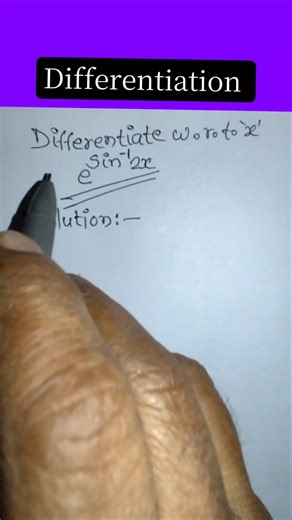 Differentiation
Differentiate w.r.to 'x'
e^sin⁻¹2x
lution:-